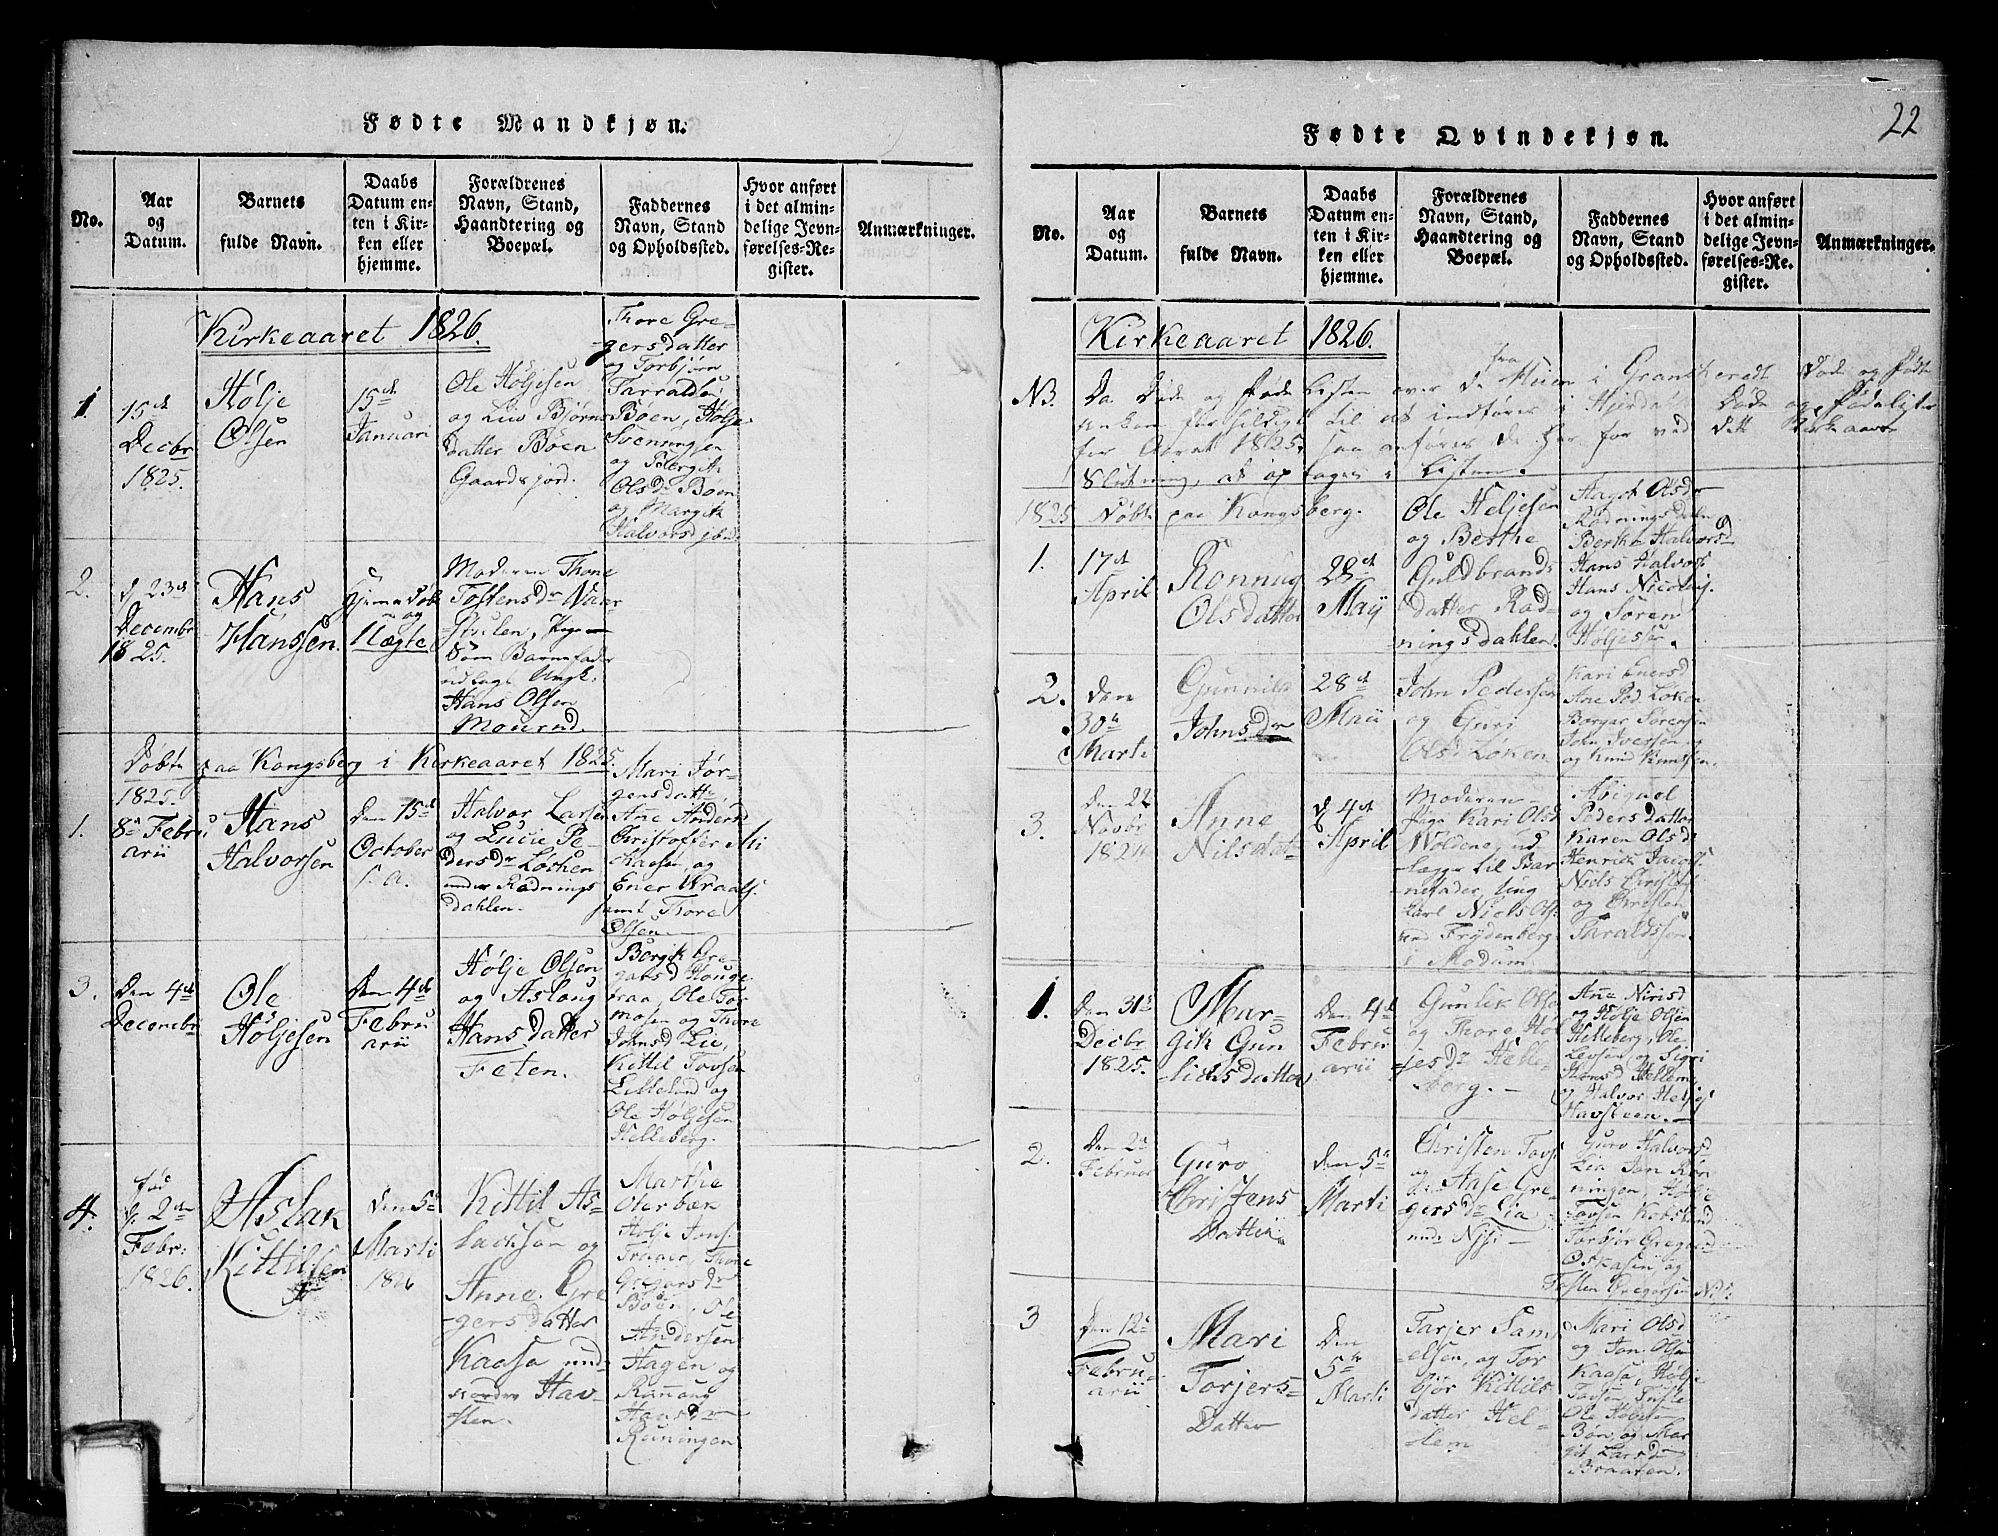 Fødte Mandkjøn.
No.
Aar
og
Datum.
Barnets
fulde Navn.
Daabs
Datum en-
ten i Kir-
ken eller
hjemme.
Forældrenes
Navn, Stand,
Haandtering og
Boepæl.
Faddernes
Navn, Stand
og Opholdssted.
Hvor anført
i det almin-
delige Jevn-
førelses-Re-
gister.
Anmærkninger.
Kirkeaaret 1826.
1
15de
Decbr
1825.
Hølje
Olsen
15de
Januari
Ole Høljesen
og Liv Bjørns
datter Bøen
Gaardsjord.
Thore Gre-
gersdatter
og Torbjørn
Tarralden
Bøen, Hølje
Svenungsen
og Bergit
Olsdr Bøen
og Margit
Halvorsd
2.
d 23de
Decembr
1825.
Hans
Hanssen.
og
Uægte
Moderen Thone
Tostens dr
Barnefader
udlagt Ungk.
Hans Olsen
Døbte paa Kongsberg i Kirkeaaret 1825.
1.
1825.
8de Febru
arii
Hans
Halvorsen
Den 15de
October
s. a.
Halvor Larsen
og Lucie Pe-
dersdr Løchen
under Rødnings
dahlen.
Mari Jør-
gensdatter
Ane Anders
Christoffer Mi
Kaasen, og
Ener Wraals.
samt Thore
Olsen.
3.
Den 4de
Decembr
Ole
Høljesen
Den 4de
Febru
arii
Hølje Olsen
og Aslaug
Hans datter
Feten.
Borgit Gre-
gersd Houge
traa, Ole Tor
mosen og Thore
Johnsd Lie,
Kittil Tovsen
Lilleland og
Ole Høljesen
Helleberg.
4.
fød
d. 2den
Febr.
1826.
Aslak
Kittilsen
den 5te
Marti
1826
Kittil As-
lacksen og
Anne Gre
gersdatter
Kaasa und
nordre Hav-
sten.
Marthe
Oterbæk
Hølje Jons.
Traaer, Thore
Gregersdr
Bøen, Ole
Andersen
Hagen og
Rannaug
Hansdr
Reiningen
22
Fødte Qvindekjøn.
No.
Aar
og
Datum.
Barnets
fulde Navn.
Daabs
Datum en-
ten i Kir-
ken eller
hjemme.
Forældrenes
Navn, Stand,
Haandtering og
Boepæl.
Faddernes
Navn, Stand
og Opholdssted.
Hvor anført
i det almin-
delige Jevn-
førelses-Re-
gister.
Anmærkninger.
Kirkeaaret 1826.
NB. Da Døde og Føde Listen over de fra i Gransherad Døde og Fødte
for sildigt til at indføres i Hjerda Døde og Fødelister
for Aaret 1825. saa anføres de her for ved dette Kirkeaars
Slutning, at optages i Listen.
1825 Døbte paa Kongsberg.
1.
17de
April
Ronnug
Olsdatter
28de
Maij
Ole Heljesen
og Berthe
Guldbrands
datter Rød-
ningsdahlen.
Aagot Olsdr
Rødningsdalen
Berthe Halvorsd
Hans Halvors
Hans Nicolaj
og Søren
Høljesen.
2.
den
30te
Marti
Gunnild
Johnsdr
28de
Maii
John Pedersen
og Guri
Olsd Løken
Kari Enersd
Ane Ped. Løken
Borgar Sørensen
John Iversen
og Knud Knutsen
3.
Den 22
Novbr
1824
Anne
Nilsdat
d 4de
April
Moderen
Pige Kari Olsd
Woldene, ud
lægger til Bar
nefader, Ung
karl Niels Ols.
und Frydenberg
i Modum
Abigael
Pedersdatter
Karen Olsd
Henrich Jacobs.
Niels Christ.
og Christen
Taraldssen.
1.
Den 31te
Decbr
1825.
Mar-
git Gun
lichsdatter
Den 4de
Febru
arii
Gunlik Olse
og Thore Høl
jesdr Helle-
berg.
Ane Nirisd
og Hølje Olsen
Helleberg, Ole
Levsen, og Sigri
Hansd Hellem
og Halvor Heljes
Havsteen.
2.
Den 2de
Februar
Guro
Christens
Datter
den 5te
Marti
Christen Tovs
og Aase Gre-
gersdr Lia
und
Guro Halvorsd
Lia Jon Røn
ningen, Hølje
Tovsen Kobsland
Torbør Gregersd
og
Tosten Gregersen
3
Den 12te
Febru-
arii
Mari
Torjers-
Datter
Den
5te
Marti
Tarjer Sam-
elsen, og Tor
bjør Kittils
datter Hel-
lem
Mari Olsd
og Jon Olsen
Kaasa, Hølje
Tovsen
Ole Høljesen
Bøn, og Mar
git Larsdr
Braaten.